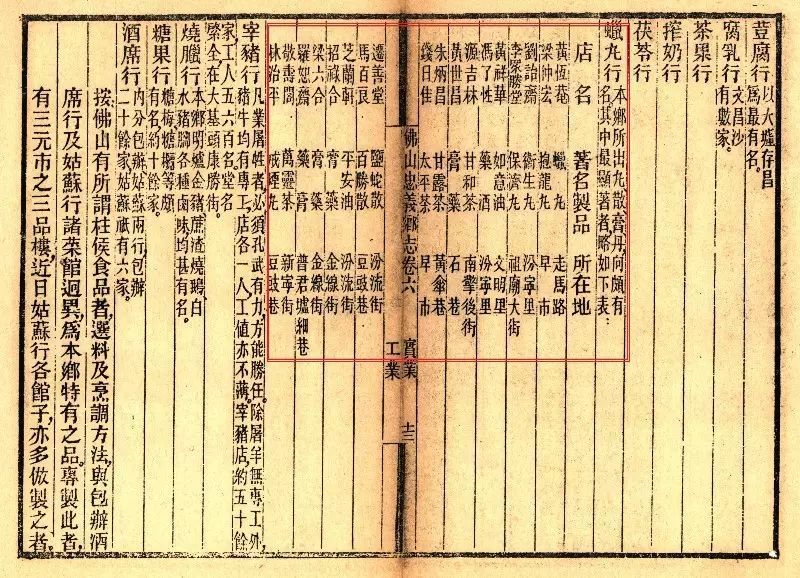 荳腐行 以大墟存昌
爲最有名。
腐乳行 文昌沙
有數家。
茶菓行
搾奶行
茯苓行
蠟丸行 本鄉所出丸散膏丹向頗有
名其中最顯著者略如下表:
店名 著名製品 所在地
黃恆菴 蠟丸 走馬路
梁仲宏 抱龍丸 早市
劉詒齋 衛生丸 汾寧里
李衆勝堂 保濟丸 祖廟大街
黃祥華 如意油 文明里
馮了性 藥酒 汾寧里
源吉林 甘和茶 南擎後街
黃世昌 膏藥 石巷
朱炳昌 甘露茶 黃傘巷
錢日佳 太平茶 早市
佛山忠義鄉志卷六 實業 十三
工業
遷善堂 鹽蛇散 汾流街
馬百良 百勝散 豆豉巷
芝蘭軒 平安油 汾流街
招祿合 膏藥 金線街
梁六合 膏藥 金線街
羅恕齋 藥膏 普君墟細巷
敬壽閣 萬靈茶 新寧街
林治平 戒煙丸 豆豉巷
宰豬行 凡業屠牲者必須孔武有力,方能勝任。除屠羊無專工外,
豬牛均有專工。店各一人,工値亦不薄。宰豬店,約五十餘
家,工人五六百名,堂名
全在大基頭康勝街。
燒臘行 本鄉明爐金豬蔗渣燒鵝白
水豬腳各種鹵味,均甚有名。
糖果行 糖梅糖欖等頗
有名,約十餘家。
酒席行 內分包辦姑蘇兩行,包辦
二十餘家,姑蘇祇有六家。
按佛山有所謂柱侯食品者,選料及烹調方法,與包辦酒
席行及姑蘇行諸菜館迥異,爲本鄉特有之品。專製此者,
有三元市之三品樓,近日姑蘇行各館子,亦多倣製之者。